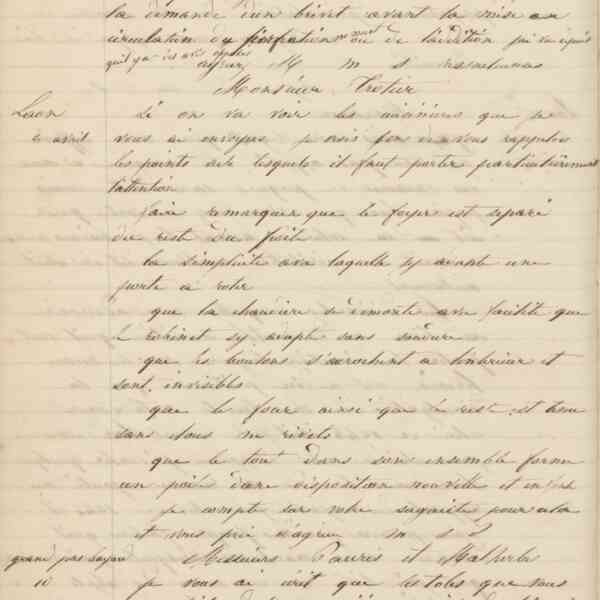 la demande d'un brivet avant la mise en
circulation ou de l'addition
qu'il y a
agreez M m s
Monsieur Trotier
Laon
Si on va voir les que je
6 avril
vous ai envoyés je vous rappeler
les points sur lesquels il faut porter particulièrement
l'attention
faire remarquer que le foyer est separé
du reste du
la simplicité avec laquelle s'y adapte une
porte a rotir
que la chaudière se demonte avec facilité que
le robinet s'y adapte sans soudure
que les boulons s'accrochent a l'interieur et
sont invisibles
que le four ainsi que le reste est tenu
sans clous ni rivets
que le tout dans son ensemble forme
un poêle d'une disposition nouvelle et
je compte sur votre pour cela
et vous prie d'agreer m s
Messieurs et Malherbe
10
je vous ai écrit que les toles que vous